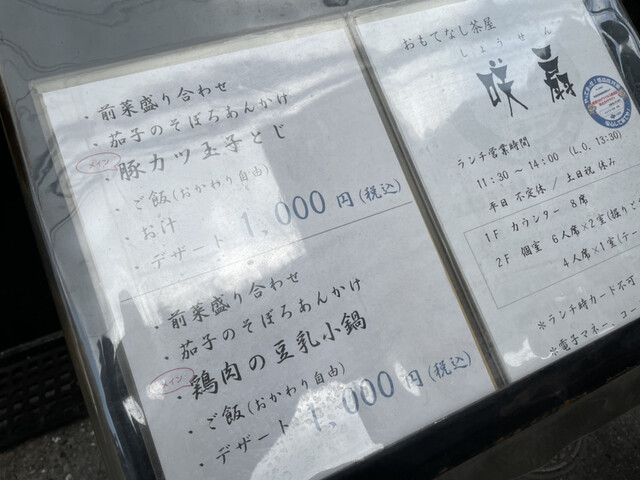 ・前菜盛り合わせ
・茄子のそぼろあんかけ
メイン
・豚カツ玉子とじ
・ご飯(おかわり自由)
・お汁
・デザート 1,000円(税込)
・前菜盛り合わせ
・茄子のそぼろあんかけ
メイン
・鶏肉の豆乳小鍋
・ご飯(おかわり自由)
・デザート 1,000円(税込)
おもてなし茶屋
しょうせん
ランチ営業時間
11:30～14:00 (L.O. 13:30)
平日 不定休 / 土日祝 休み
1F カウンター 8席
2F 個室 6人席×2室(掘りご
4人席×1室(テー
※ランチ時カード不可
※電子マネー、コー